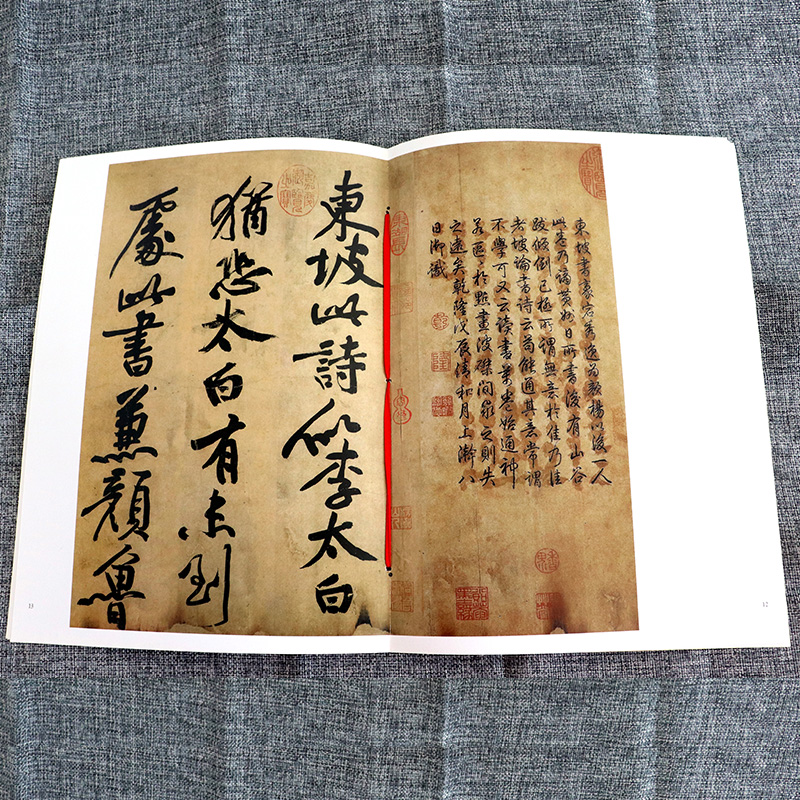 東坡書豪宕秀逸為顏楊以後一人
此卷乃謫黃州日所書後有山谷
跋傾倒已極所謂無意於佳乃佳
者坡論書詩云苟能通其意常謂
不學可又云讀書萬卷始通神
若區區於點畫波磔間求之則失
之遠矣乾隆戊辰清和月上澣八
日御識
12
東坡此詩似李太白
猶恐太白有未到
處此書兼顏魯
13